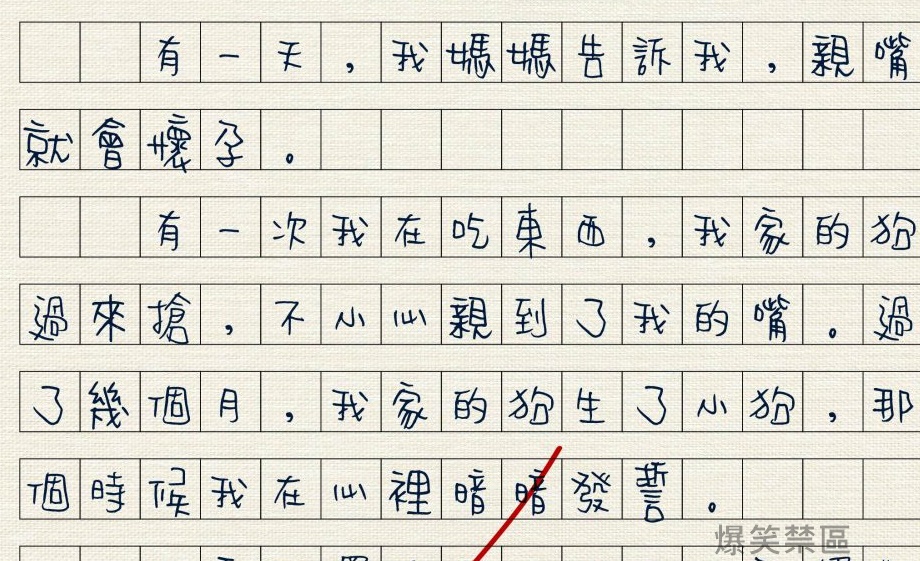 有一天，我媽媽告訴我，親嘴
就會懷孕。
有一次我在吃東西，我家的狗
過來搶，不小心親到了我的嘴。過
了幾個月，我家的狗生了小狗，那
個時候我在心裡暗暗發誓。
爆笑禁區